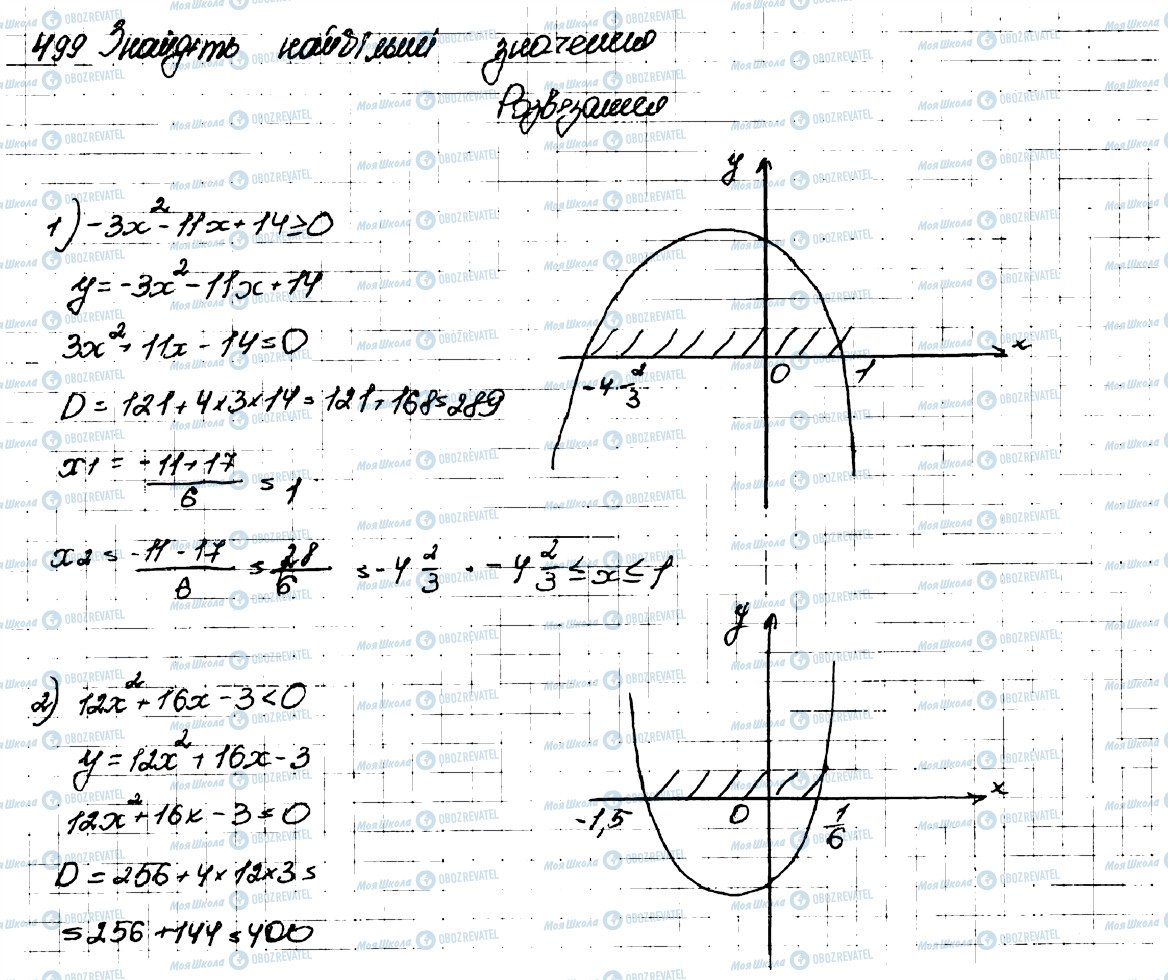 499 Знайдіть найбільші значення
Розв'язання
1) -3x² - 11x + 14 ≥ 0
y = -3x² - 11x + 14
3x² + 11x - 14 = 0
D = 121 + 4×3×14 = 121 + 168 = 289
x1 = (-11+17)/6 = 1
x2 = (-11-17)/6 = 28/6 = -4 2/3 . -4 2/3 ≤ x ≤ 1
y
x
0
-4 2/3
1
2) 12x² + 16x - 3 < 0
y = 12x² + 16x - 3
12x² + 16x - 3 = 0
D = 256 + 4×12×3 =
= 256 + 144 = 400
y
x
-1,5
0
1/6
Моя Школа OBOZREVATEL